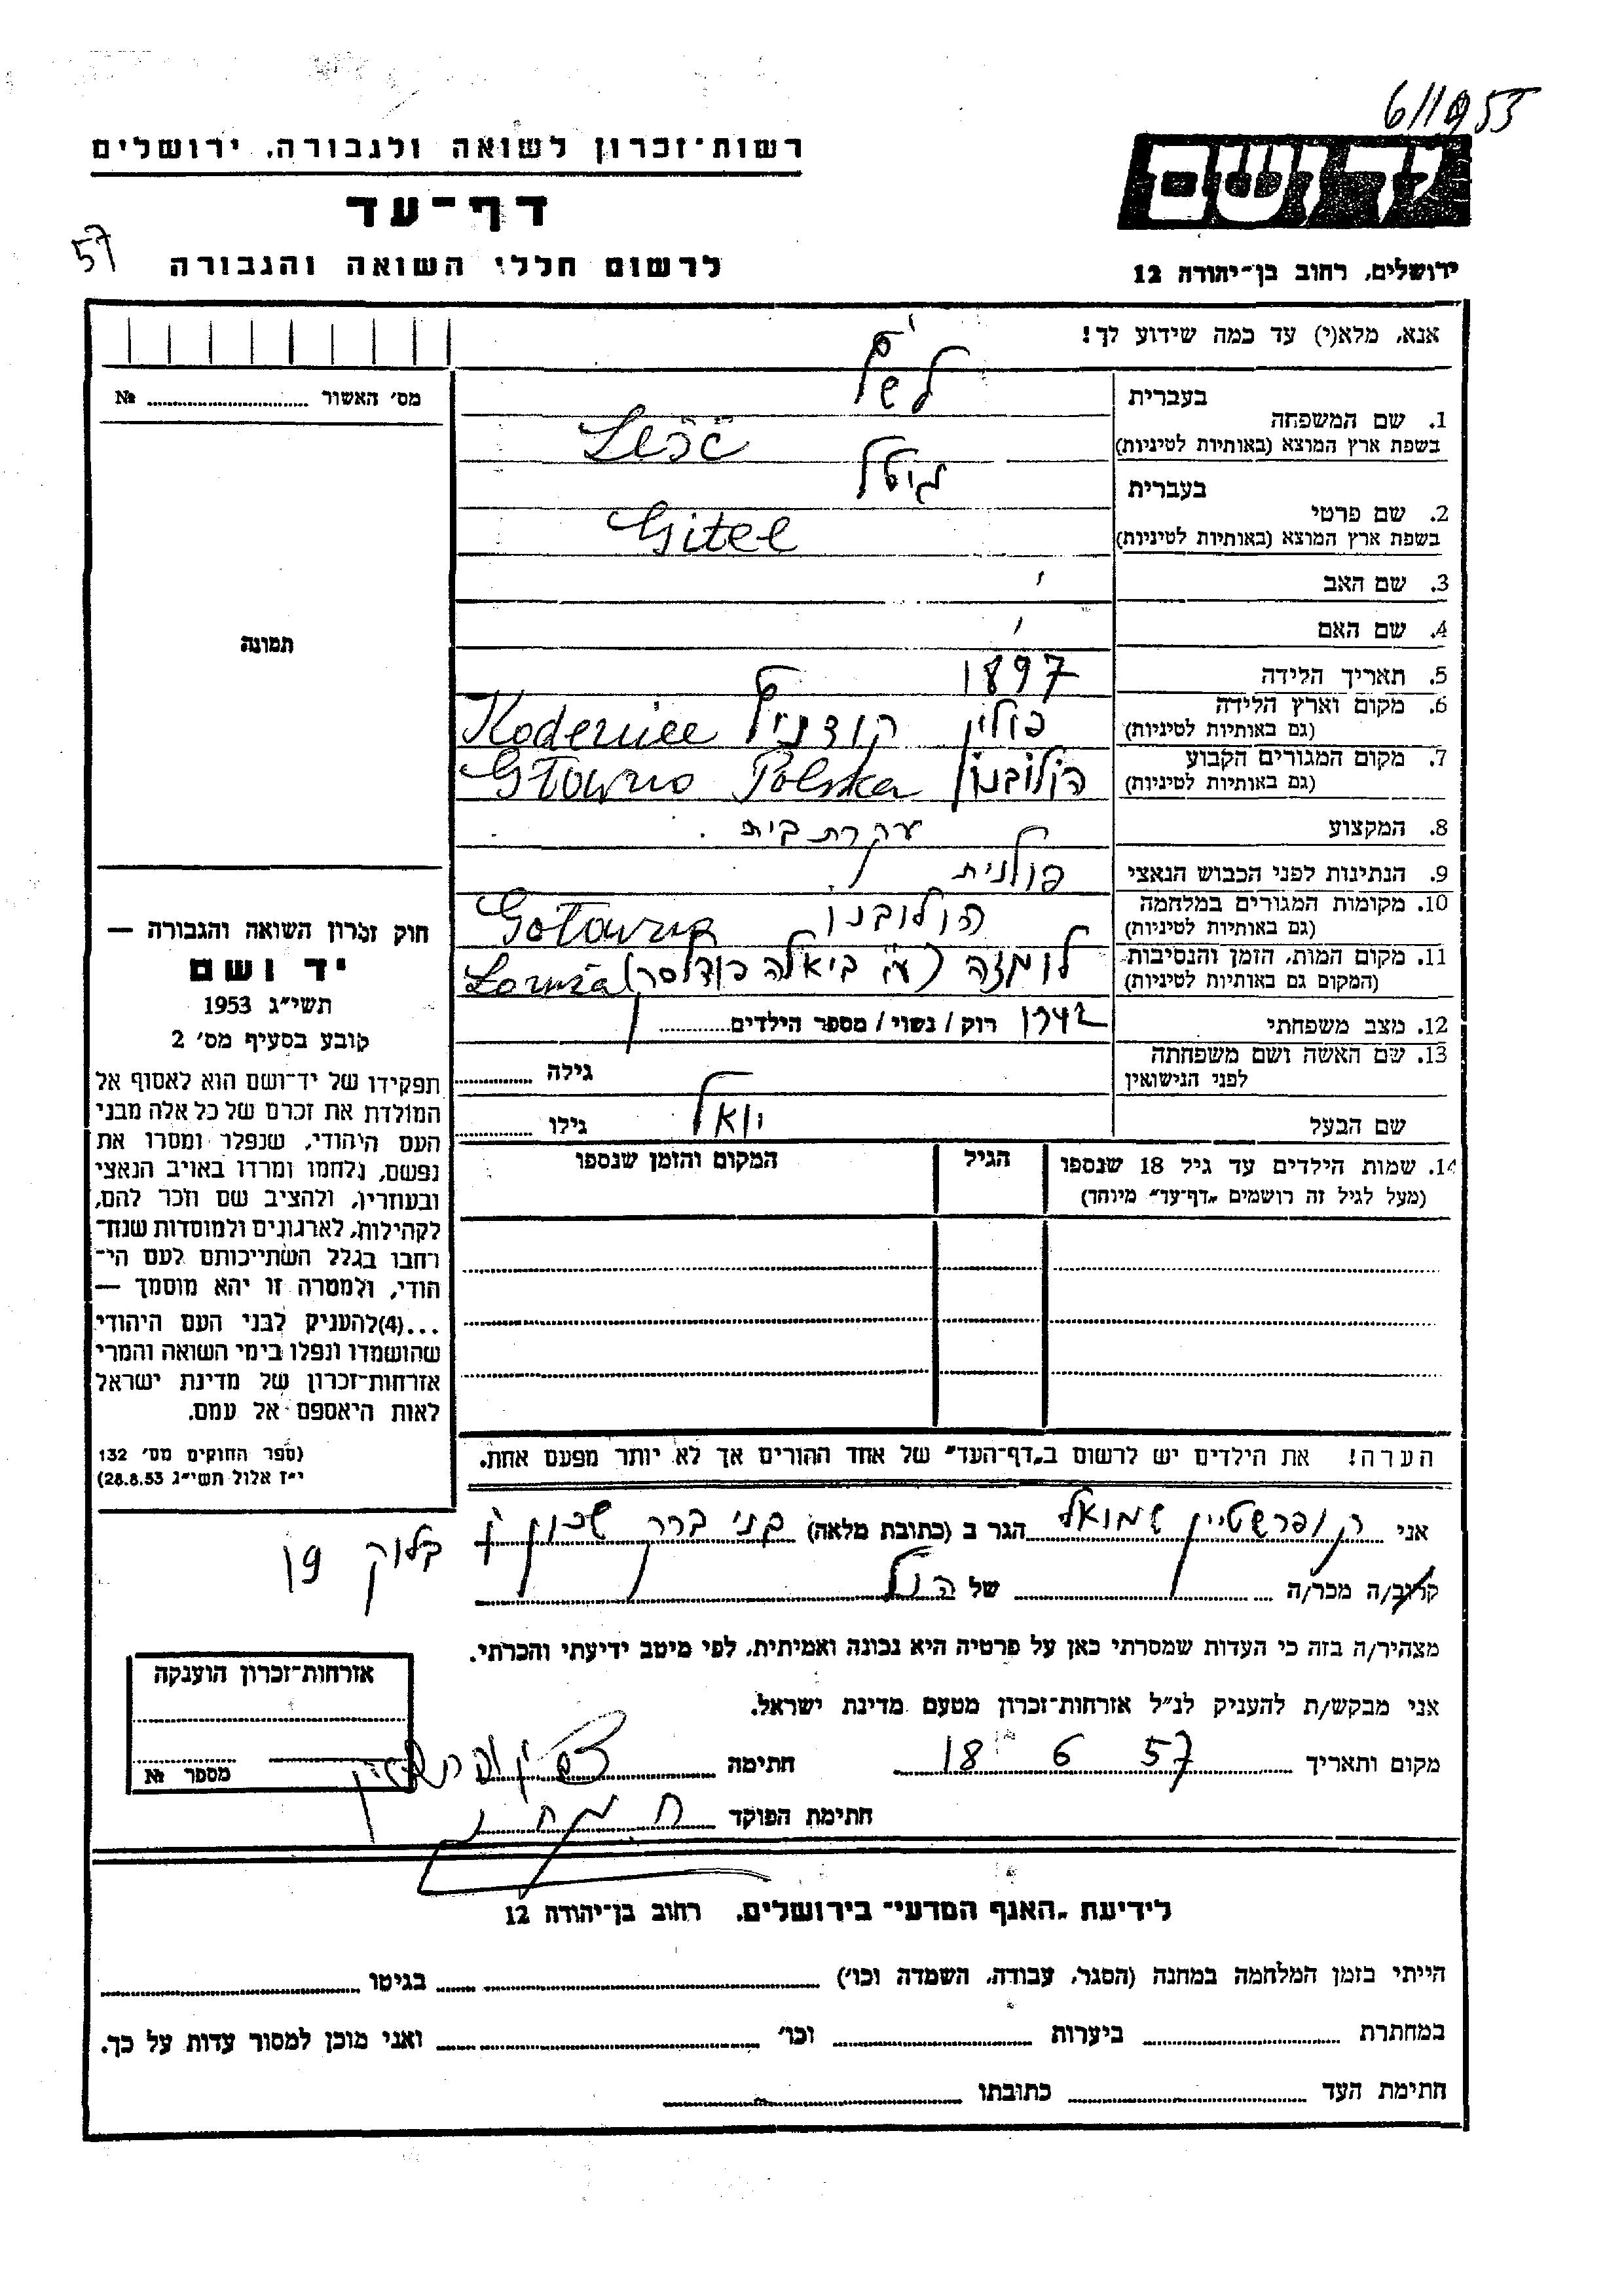 611955
רשות־זכרון לשואה ולגבורה, ירושלים
יד ושם
דף־עד
57
לרשום חללי השואה והגבורה
ירושלים, רחוב בן־יהודה 12
אנא, מלא(י) עד כמה שידוע לך!
מס׳ האשור № 
בעברית
1. שם המשפחה
בשפת ארץ המוצא (באותיות לטיניות)
בעברית גיטל
2. שם פרטי
בשפת ארץ המוצא (באותיות לטיניות) Gitel
3. שם האב
4. שם האם
תמונה
5. תאריך הלידה 1897
6. מקום וארץ הלידה פולין
(גם באותיות לטיניות)
7. מקום המגורים הקבוע Polska
(גם באותיות לטיניות)
8. המקצוע עקרת בית
9. הנתינות לפני הכבוש הנאצי פולנית
10. מקומות המגורים במלחמה
(גם באותיות לטיניות)
11. מקום המות, הזמן והנסיבות לומזה
(המקום גם באותיות לטיניות)
12. מצב משפחתי רוק/נשוי/מספר הילדים
13. שם האשה ושם משפחתה גילה
לפני הנישואין
שם הבעל יואל גילו
14. שמות הילדים עד גיל 18 שנספו הגיל המקום והזמן שנספו
(מעל לגיל זה רושמים „דף־עד״ מיוחד)
חוק זכרון השואה והגבורה —
יד ושם
תשי״ג 1953
קובע בסעיף מס׳ 2
תפקידו של יד־ושם הוא לאסוף אל
המולדת את זכרם של כל אלה מבני
העם היהודי, שנפלו ומסרו את
נפשם, נלחמו ומרדו באויב הנאצי
ובעוזריו, ולהציב שם וזכר להם,
לקהילות, לארגונים ולמוסדות שנח־
רבו בגלל השתייכותם לעם הי־
הודי, ולמטרה זו יהא מוסמך —
...(4)להעניק לבני העם היהודי
שהושמדו ונפלו בימי השואה והמרי
אזרחות־זכרון של מדינת ישראל
לאות היאספם אל עמם.
(ספר החוקים מס׳ 132
י״ז אלול תשי״ג 28.8.53)
הערה! את הילדים יש לרשום ב„דף־העד״ של אחד ההורים אך לא יותר מפעם אחת.
אני קופרשטיין שמואל הגר ב (כתובת מלאה) בני ברק שכון ו בלוק 19
קרוב/ה מכר/ה של הנ״ל
מצהיר/ה בזה כי העדות שמסרתי כאן על פרטיה היא נכונה ואמיתית, לפי מיטב ידיעתי והכרתי.
אני מבקש/ת להעניק לנ״ל אזרחות־זכרון מטעם מדינת ישראל.
אזרחות־זכרון הוענקה
מספר №
מקום ותאריך 18 6 57 חתימה
חתימת הפוקד
לידיעת „האגף המדעי״ בירושלים, רחוב בן־יהודה 12
הייתי בזמן המלחמה במחנה (הסגר, עבודה, השמדה וכו׳) בגיטו
במחתרת ביערות וכו׳ ואני מוכן למסור עדות על כך.
חתימת העד כתובתו